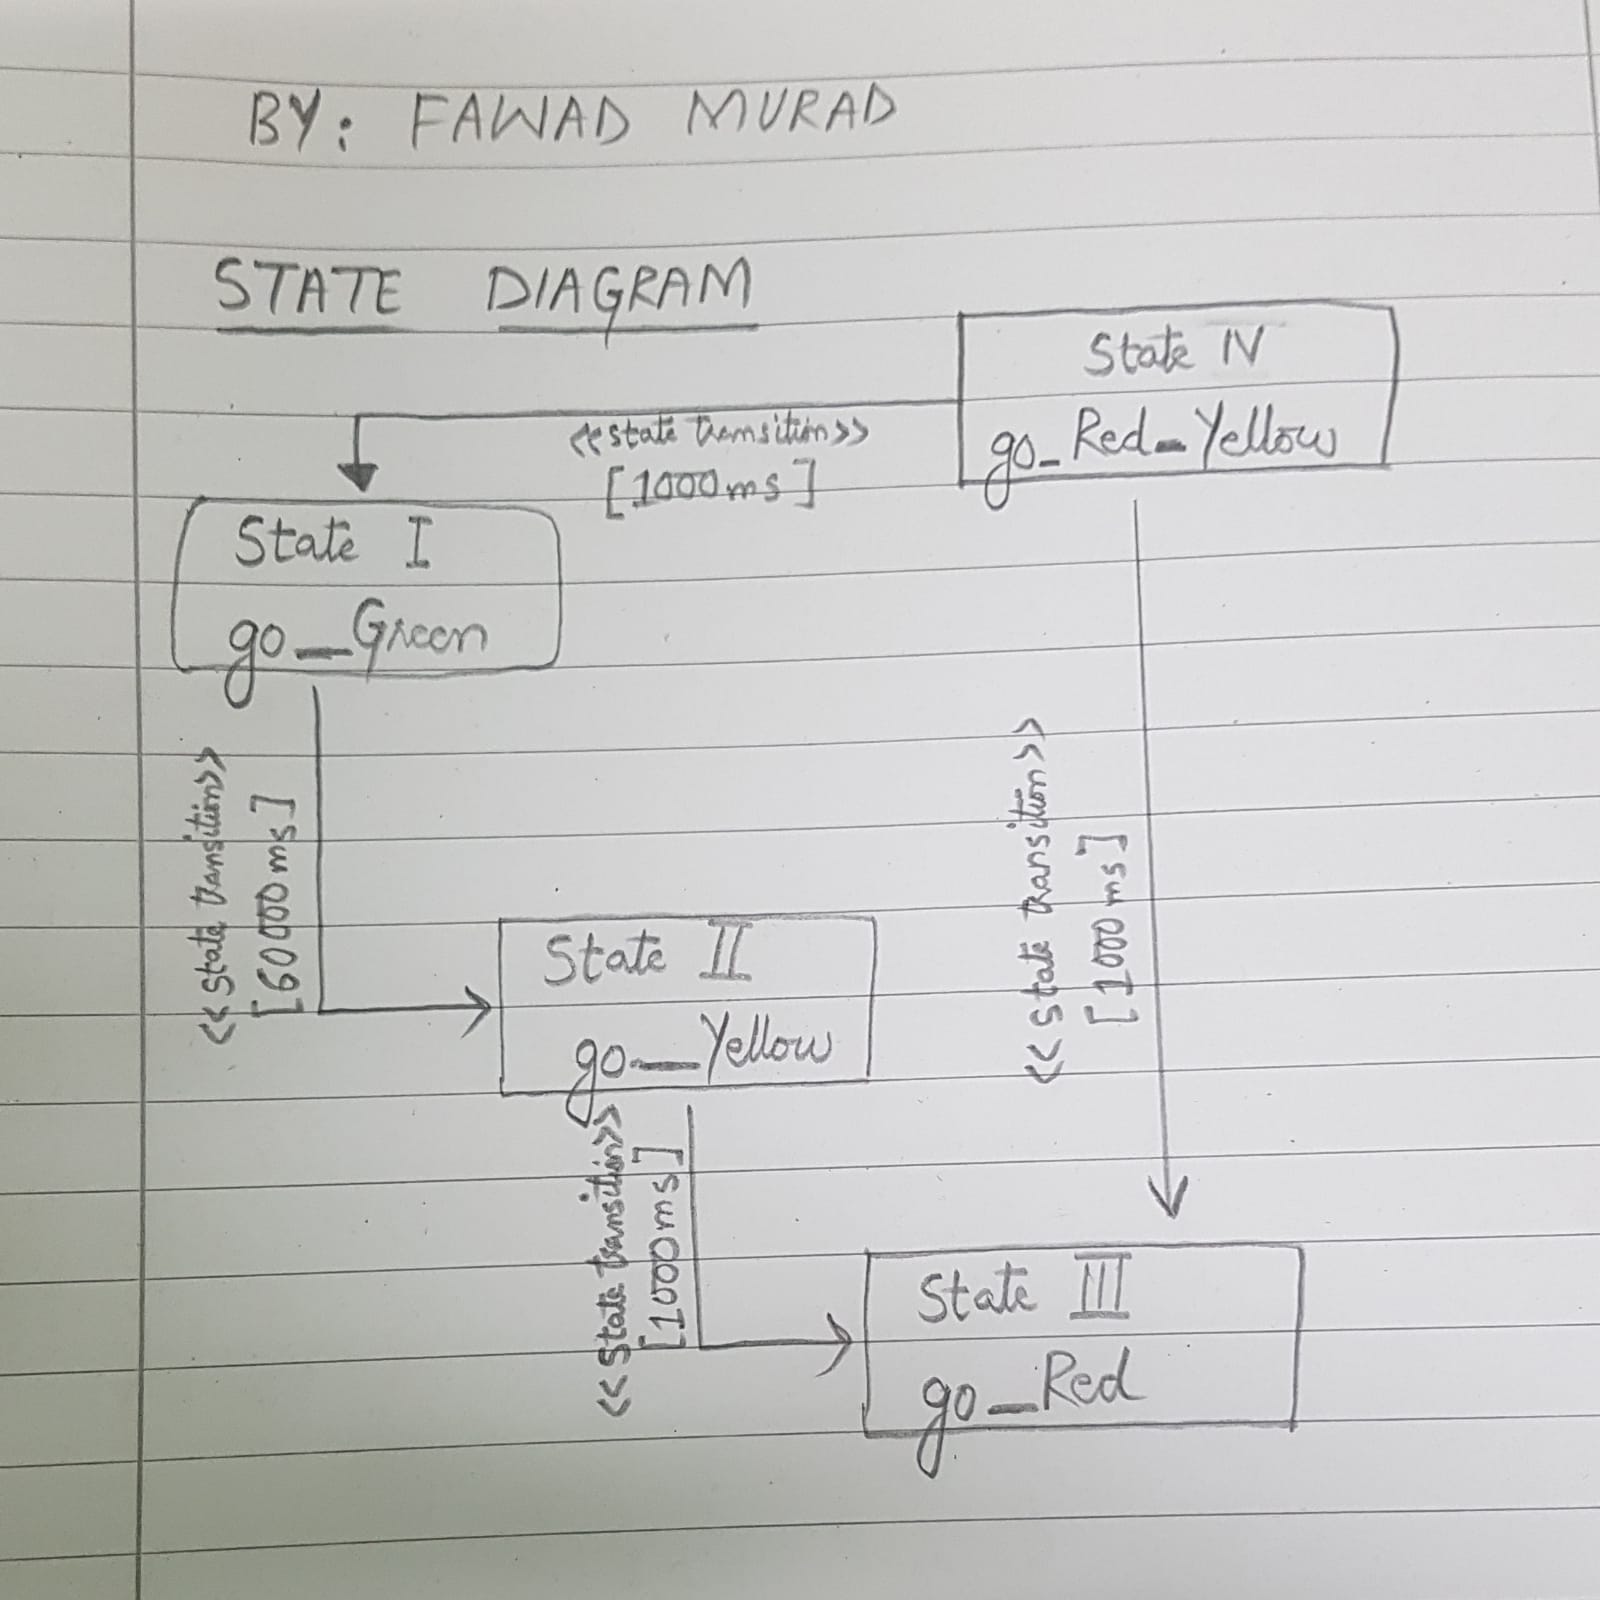 BY: FAWAD MURAD
STATE DIAGRAM
State IV
go_Red_Yellow
<<state transition>>
[1000ms]
State I
go_Green
<<state transition>>
[60000ms]
<<state transition>>
[1000ms]
State II
go_Yellow
<<State transition>>
[1000ms]
State III
go_Red